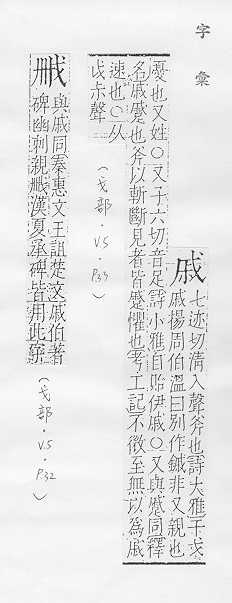 字彙
戚
七迹切清入聲斧也詩大雅干戈
戚揚周伯溫曰別作鏚非又親也
憂也又姓○又子六切音足詩小雅自貽伊戚○又與蹙同釋
名戚蹙也斧以斬斷見者皆蹙懼也考工記不微至無以為戚
速也○从
戉尗聲
(戈部.V5.P.33)
與戚同秦惠文王詛楚文戚伯著
碑幽刺親漢夏承碑皆用此字
(戈部.V5.P.32)